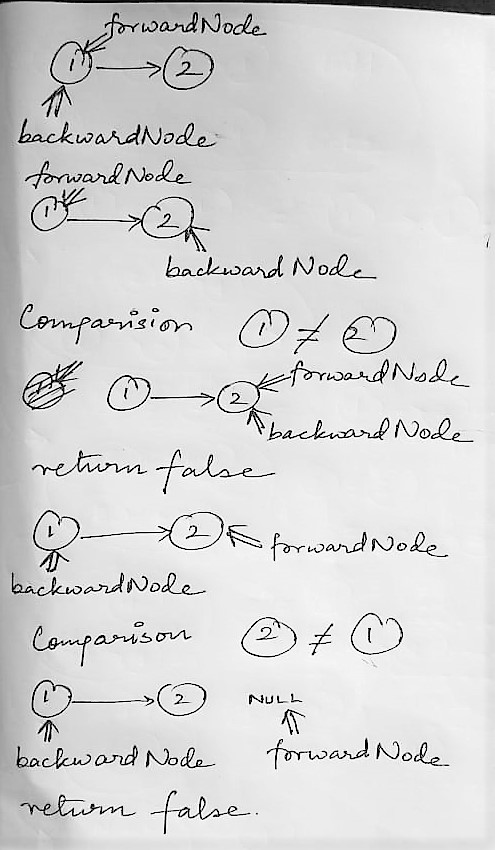 forwardNode
1 2
backwardNode
forwardNode
1 2
backwardNode
Comparision 1 ≠ 2
forwardNode
1 2
backwardNode
return false
1 2
forwardNode
backwardNode
Comparison 2 ≠ 1
1 2 NULL
backwardNode forwardNode
return false.